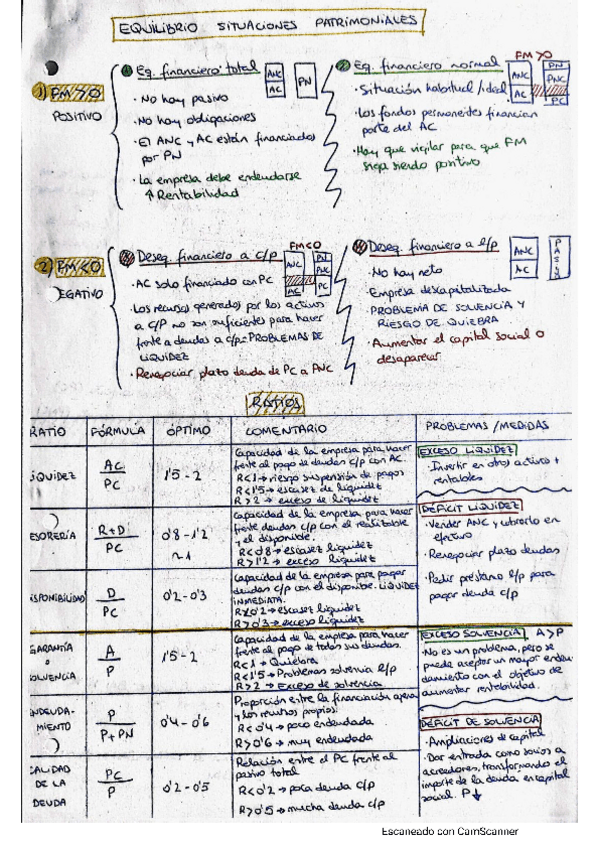 EQUILIBRIO SITUACIONES PATRIMONIALES
1) FM>0
POSITIVO
Eq. financiero total
ANC
AC
PN
· No hay pasivo
· No hay obligaciones
· El ANC y AC están financiados
por PN
· La empresa debe endeudarse
↑ Rentabilidad
Eq. financiero normal
FM>0
ANC
AC
PN
PNC
PC
· Situación habitual / ideal
· Los fondos permanentes financian
parte del AC
· Hay que vigilar para que FM
siga siendo positivo
2) FM<0
EGATIVO
Deseq. financiero a c/p
FM<0
ANC
AC
PN
PNC
PC
· AC solo financiado con PC
· Los recursos generados por los activos
a c/p no son suficientes para hacer
frente a deudas a c/p = PROBLEMAS DE
LIQUIDEZ
· Renegociar plazo deuda de PC a ANC
Deseq. financiero a l/p
ANC
AC
· No hay neto
· Empresa descapitalizada
· PROBLEMA DE SOLVENCIA Y
RIESGO DE QUIEBRA
· Aumentar el capital social o
desaparecer
RATIOS
RATIO FÓRMULA ÓPTIMO COMENTARIO PROBLEMAS / MEDIDAS
IQUIDEZ
AC
PC
1'5 - 2
Capacidad de la empresa para hacer
frente al pago de deudas c/p con AC.
R<1 → riesgo suspensión de pagos
R<1'5 → escasez de liquidez
R>2 → exceso de liquidez
EXCESO LIQUIDEZ
· Invertir en otros activos +
rentables
ESORERÍA
R+D
PC
0'8 - 1'2
~1
Capacidad de la empresa para hacer
frente deudas c/p con el realizable
y el disponible.
R<0'8 → escasez liquidez
R>1'2 → exceso liquidez
DÉFICIT LIQUIDEZ
· Vender ANC y cobrarlo en
efectivo
· Renegociar plazo deudas
· Pedir préstamo l/p para
pagar deuda c/p
ISPONIBILIDAD
D
PC
0'2 - 0'3
Capacidad de la empresa para pagar
deudas c/p con el disponible. LIQUIDEZ
INMEDIATA.
R<0'2 → escasez liquidez
R>0'3 → exceso liquidez
GARANTÍA
o
OLVENCIA
A
P
1'5 - 2
Capacidad de la empresa para hacer
frente al pago de todas sus deudas.
R<1 → Quiebra
R<1'5 → Problemas solvencia l/p
R>2 → Exceso de solvencia
EXCESO SOLVENCIA A>P
· No es un problema, pero se
puede aceptar un mayor endeu
damiento con el objetivo de
aumentar rentabilidad.
NDEUDA-
MIENTO
P
P+PN
0'4 - 0'6
Proporción entre la financiación ajena
y los recursos propios.
R<0'4 → poco endeudada
R>0'6 → muy endeudada
DÉFICIT DE SOLVENCIA
· Ampliaciones de capital
· Dar entrada como socios a
acreedores, transformando el
importe de la deuda en capital
social. P↓
CALIDAD
DE LA
DEUDA
PC
P
0'2 - 0'5
Relación entre el PC frente al
pasivo total
R<0'2 → poca deuda c/p
R>0'5 → mucha deuda c/p
Escaneado con CamScanner